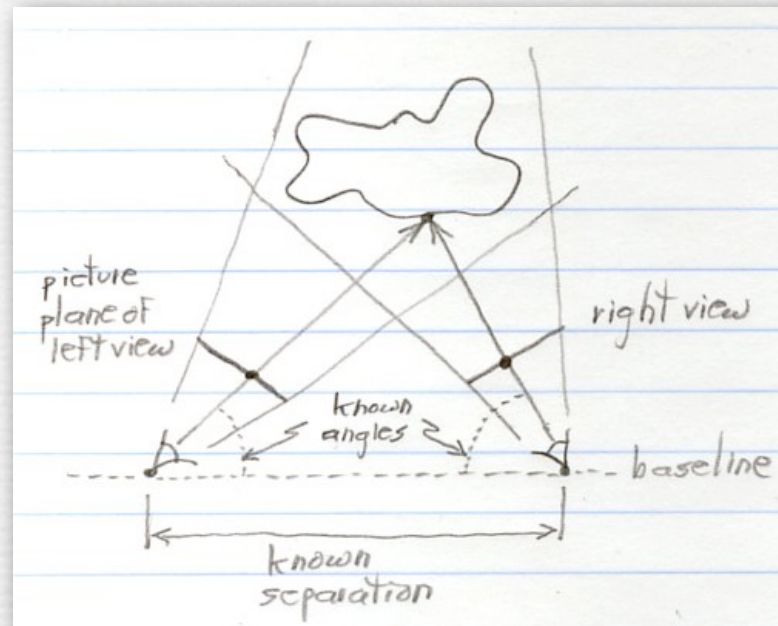 picture
plane of
left view
right view
known
angles
baseline
known
separation